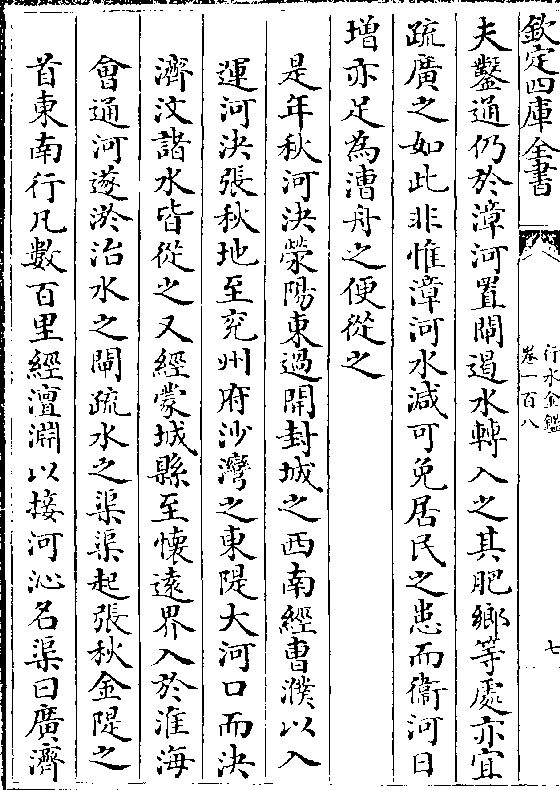 欽定四庫全書
行水金鑑
卷一百八
七
夫鑿通仍於漳河置閘遏水轉入之其肥鄉等處亦宜
疏廣之如此非惟漳河水減可免居民之患而衞河日
增亦足為漕舟之便從之
是年秋河決滎陽東過開封城之西南經曹濮以入
運河決張秋地至兖州府沙灣之東隄大河口而決
濟汶諸水皆從之又經蒙城縣至懷遠界入於淮海
會通河遂淤治水之閘疏水之渠渠起張秋金隄之
首東南行凡數百里經澶淵以接河沁名渠曰廣濟